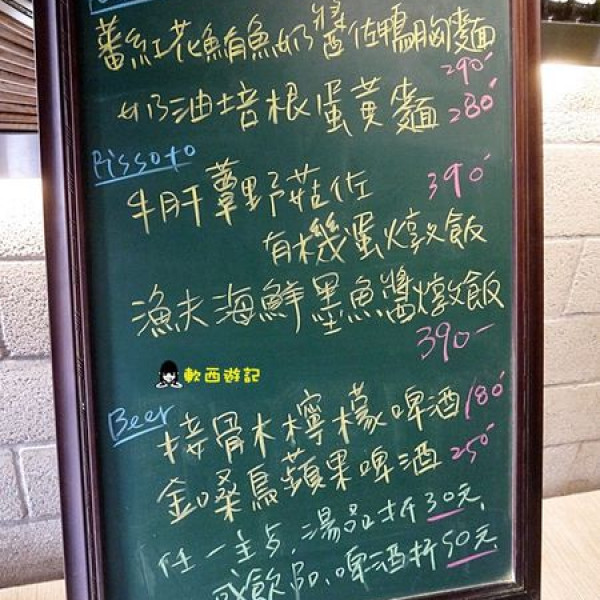 蕃紅花鮪魚奶醬佐鴨胸麵
290
奶油培根蛋黃麵 280
Rissoto
牛肝蕈野菇佐 390
有機蛋燉飯
漁夫海鮮墨魚醬燉飯
390-
軟西遊記
Beer
接骨木檸檬啤酒 180
金嗓鳥蘋果啤酒 250
任一主餐,湯品折30元
或飲品、啤酒折50元